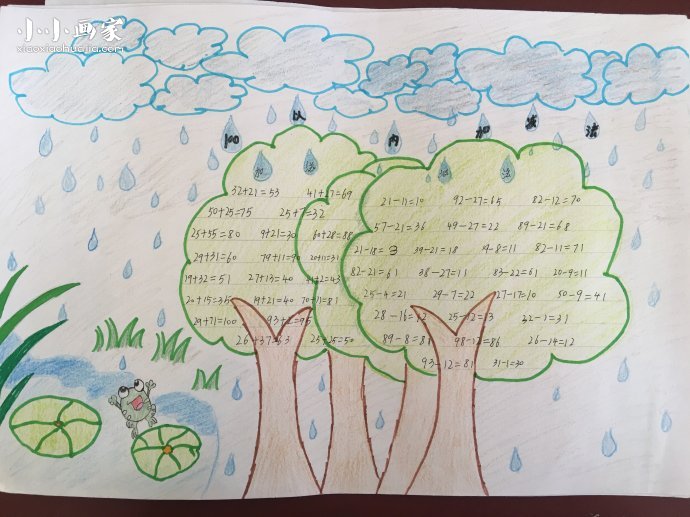 小小画家
xiaoxiaohuajia.com
100 以 内 加 减 法
加 法
32+21=53 41+27=69
50+25=75 25+7=32
25+55=80 9+21=30 60+28=88
29+31=60 79+11=90 20+11=31
19+32=51 27+13=40 41+2=43
20+15=35 19+21=40 70+11=81
29+71=100 93+2=95
26+37=63 25+25=50
减 法
21-11=10 92-27=65 82-12=70
57-21=36 49-27=22 89-21=68
21-18=3 39-21=18 19-8=11 82-11=71
82-21=61 38-27=11 83-22=61 20-9=11
25-4=21 29-7=22 27-17=10 50-9=41
28-16=12 25-12=13 32-1=31
89-8=81 98-12=86 26-14=12
93-12=81 31-1=30